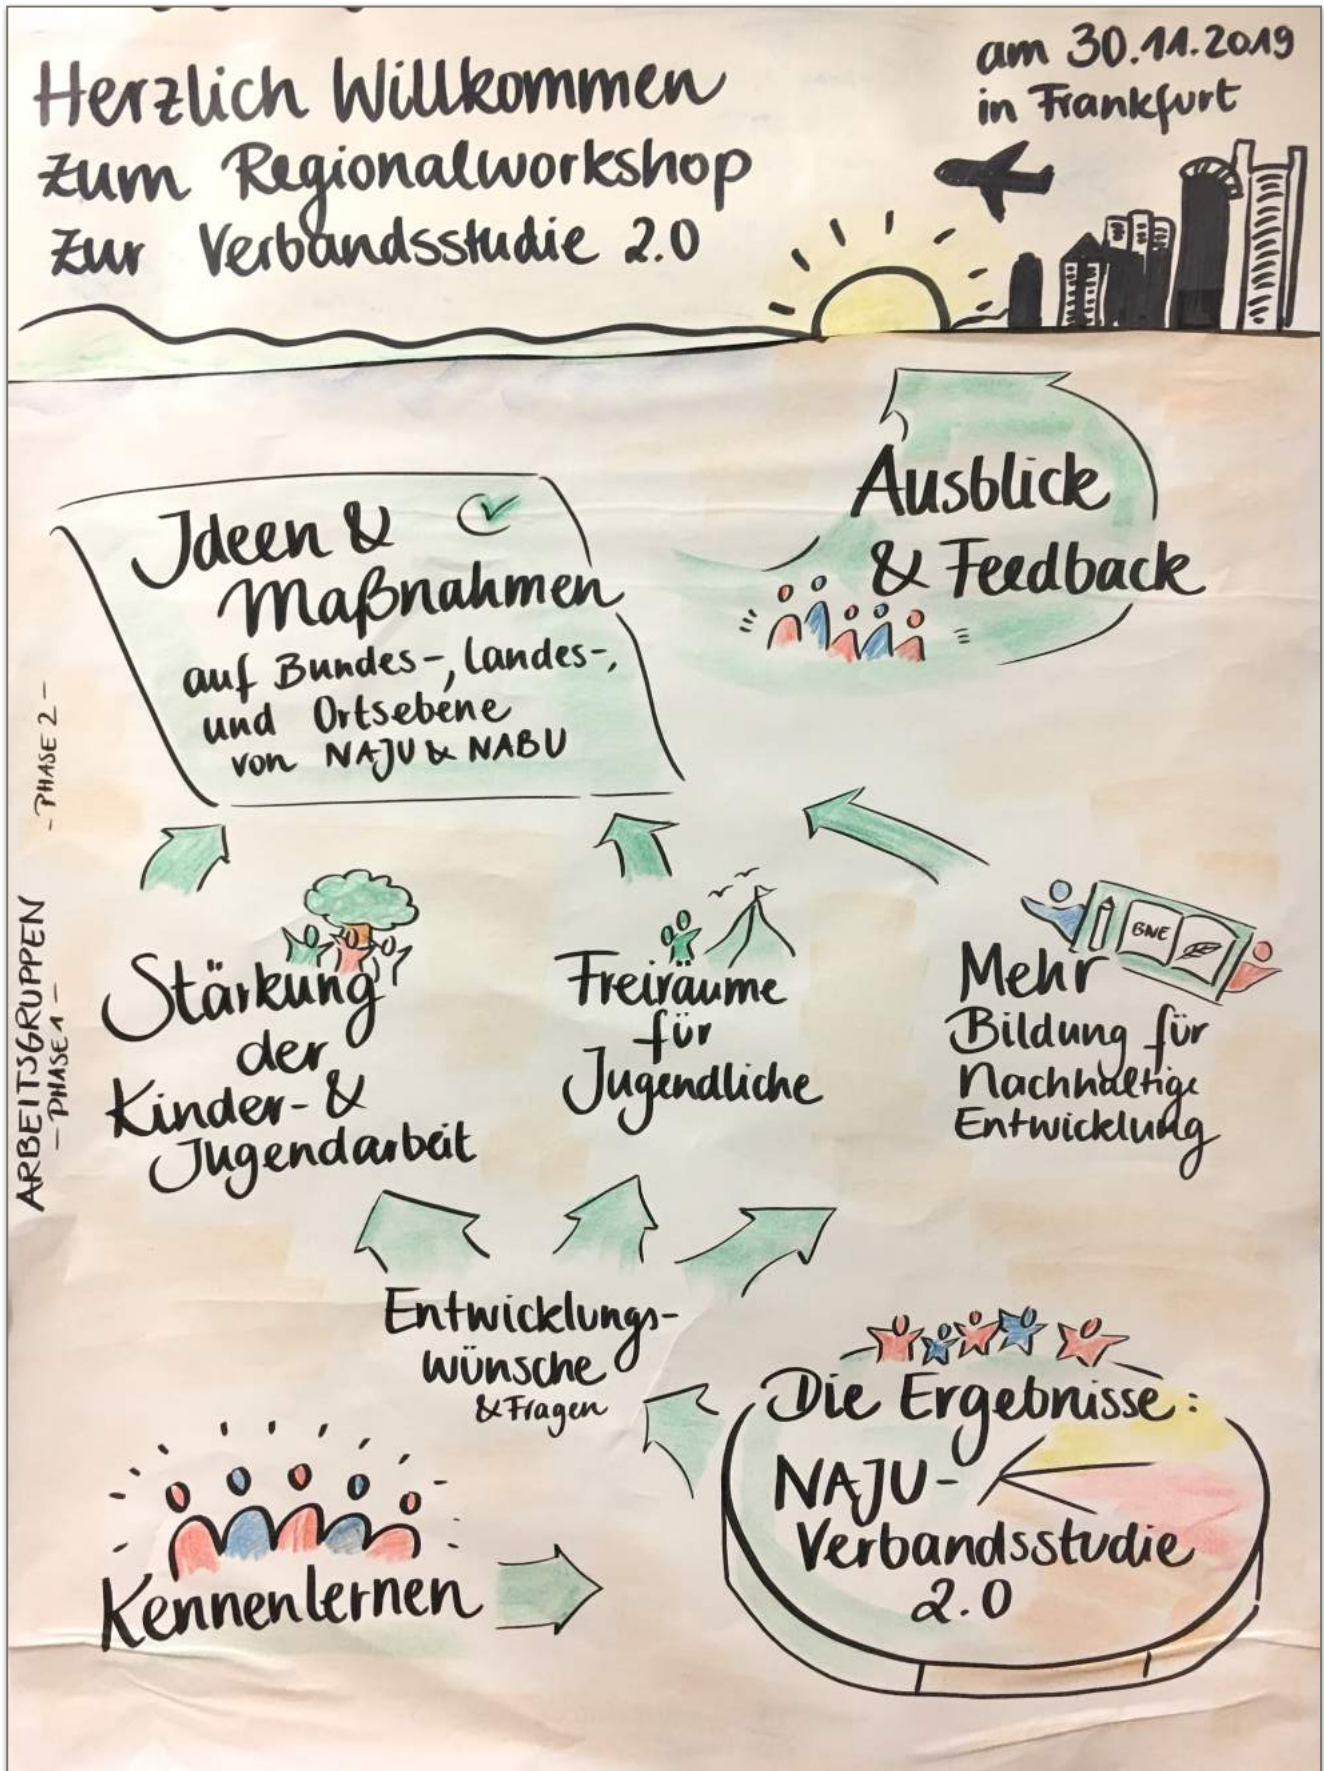 Herzlich Willkommen
zum Regionalworkshop
zur Verbandsstudie 2.0
am 30.11.2019
in Frankfurt
Ausblick
& Feedback
Ideen &
Maßnahmen
auf Bundes-, Landes-,
und Ortsebene
von NAJU & NABU
- PHASE 2 -
ARBEITSGRUPPEN
- PHASE 1 -
Stärkung
der
Kinder- &
Jugendarbeit
Freiräume
für
Jugendliche
BNE
Mehr
Bildung für
Nachhaltige
Entwicklung
Entwicklungs-
wünsche
& Fragen
Die Ergebnisse:
NAJU-
Verbandsstudie
2.0
Kennenlernen